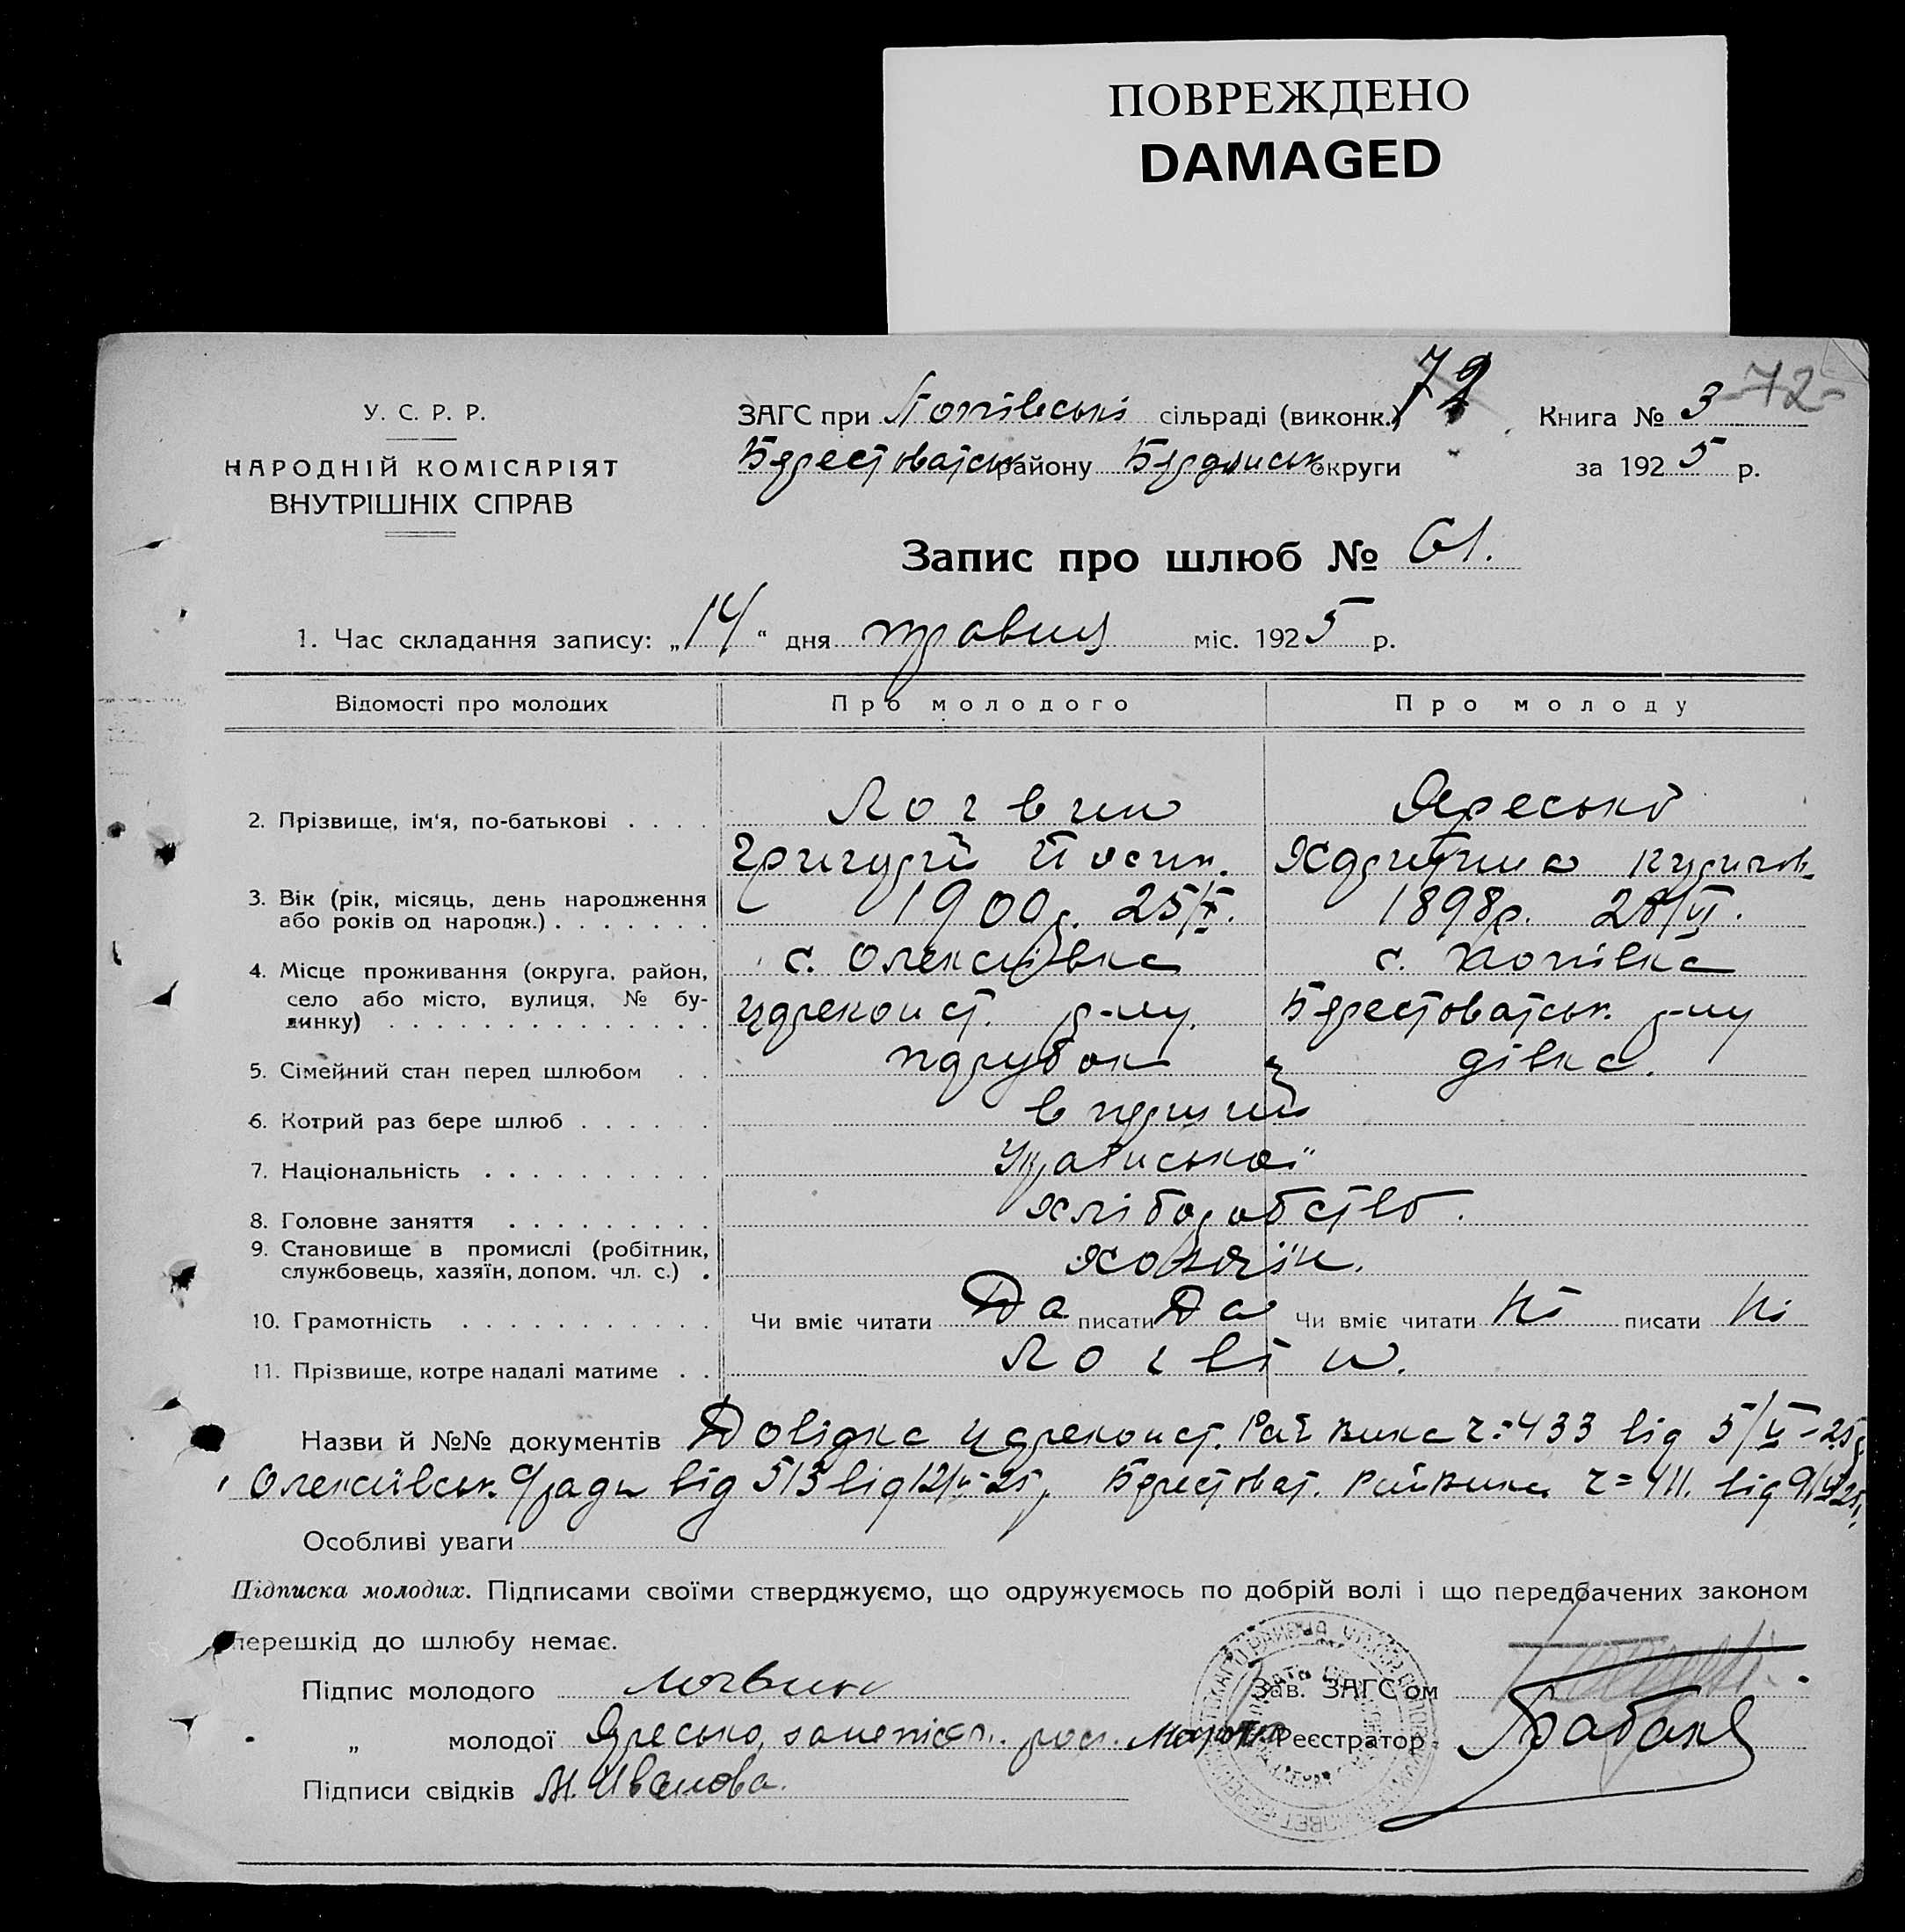 ПОВРЕЖДЕНО
DAMAGED
72
У. С. Р. Р.
НАРОДНІЙ КОМІСАРІЯТ
ВНУТРІШНІХ СПРАВ
ЗАГС при Попівські сільраді (виконк.) 72 Книга № 3
Берестоватськ району Бердянськ округи за 1925 р.
Запис про шлюб № 61.
1. Час складання запису: „14“ дня травня міс. 1925 р.
Відомості про молодих Про молодого Про молоду
2. Прізвище, ім‘я, по-батькові . . . . Логвин Яресько
Григорій Йосип.
3. Вік (рік, місяць, день народження
або років од народж.) . . . . . . . 1900р. 25/IX. 1898р. 28/VI.
4. Місце проживання (округа, район,
село або місто, вулиця, № бу-
динку) . . . . . . . . . . . . . . с. Олексіївка с. Попівка
Цареконст. р-ну. Берестоватськ. р-ну
5. Сімейний стан перед шлюбом . . парубок дівка.
6. Котрий раз бере шлюб . . . . . . в перший
7. Національність . . . . . . . . . . Української
8. Головне заняття . . . . . . . . . хліборобство.
9. Становище в промислі (робітник,
службовець, хазяїн, допом. чл. с.) . хозяїн.
10. Грамотність . . . . . . . . . . . Чи вміє читати Да писати Да Чи вміє читати Ні писати Ні
11. Прізвище, котре надалі матиме . . Логвін.
Назви й №№ документів Довідка Цареконст. Рай вика ч=433 від 5/V-25р.
Олексіївськ. с/ради від 513 від 12/V-25р. Берестоват. Райвика ч=411. від 9/V 25р.
Особливі уваги
Підписка молодих. Підписами своїми стверджуємо, що одружуємось по добрій волі і що передбачених законом
перешкід до шлюбу немає.
Підпис молодого Логвин Зав. ЗАГС‘ом
„ молодої Яресько, рос. Реєстратор
Підписи свідків М. Иванова.